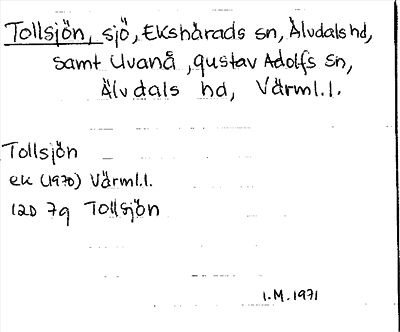 Tollsjön, sjö, Ekshärads sn, Älvdals hd,
samt Uvanå, Gustav Adolfs sn,
Älvdals hd, Värml.l.
Tollsjön
ek (1970) Värml.l.
12D 7g Tollsjön
I.M. 1971